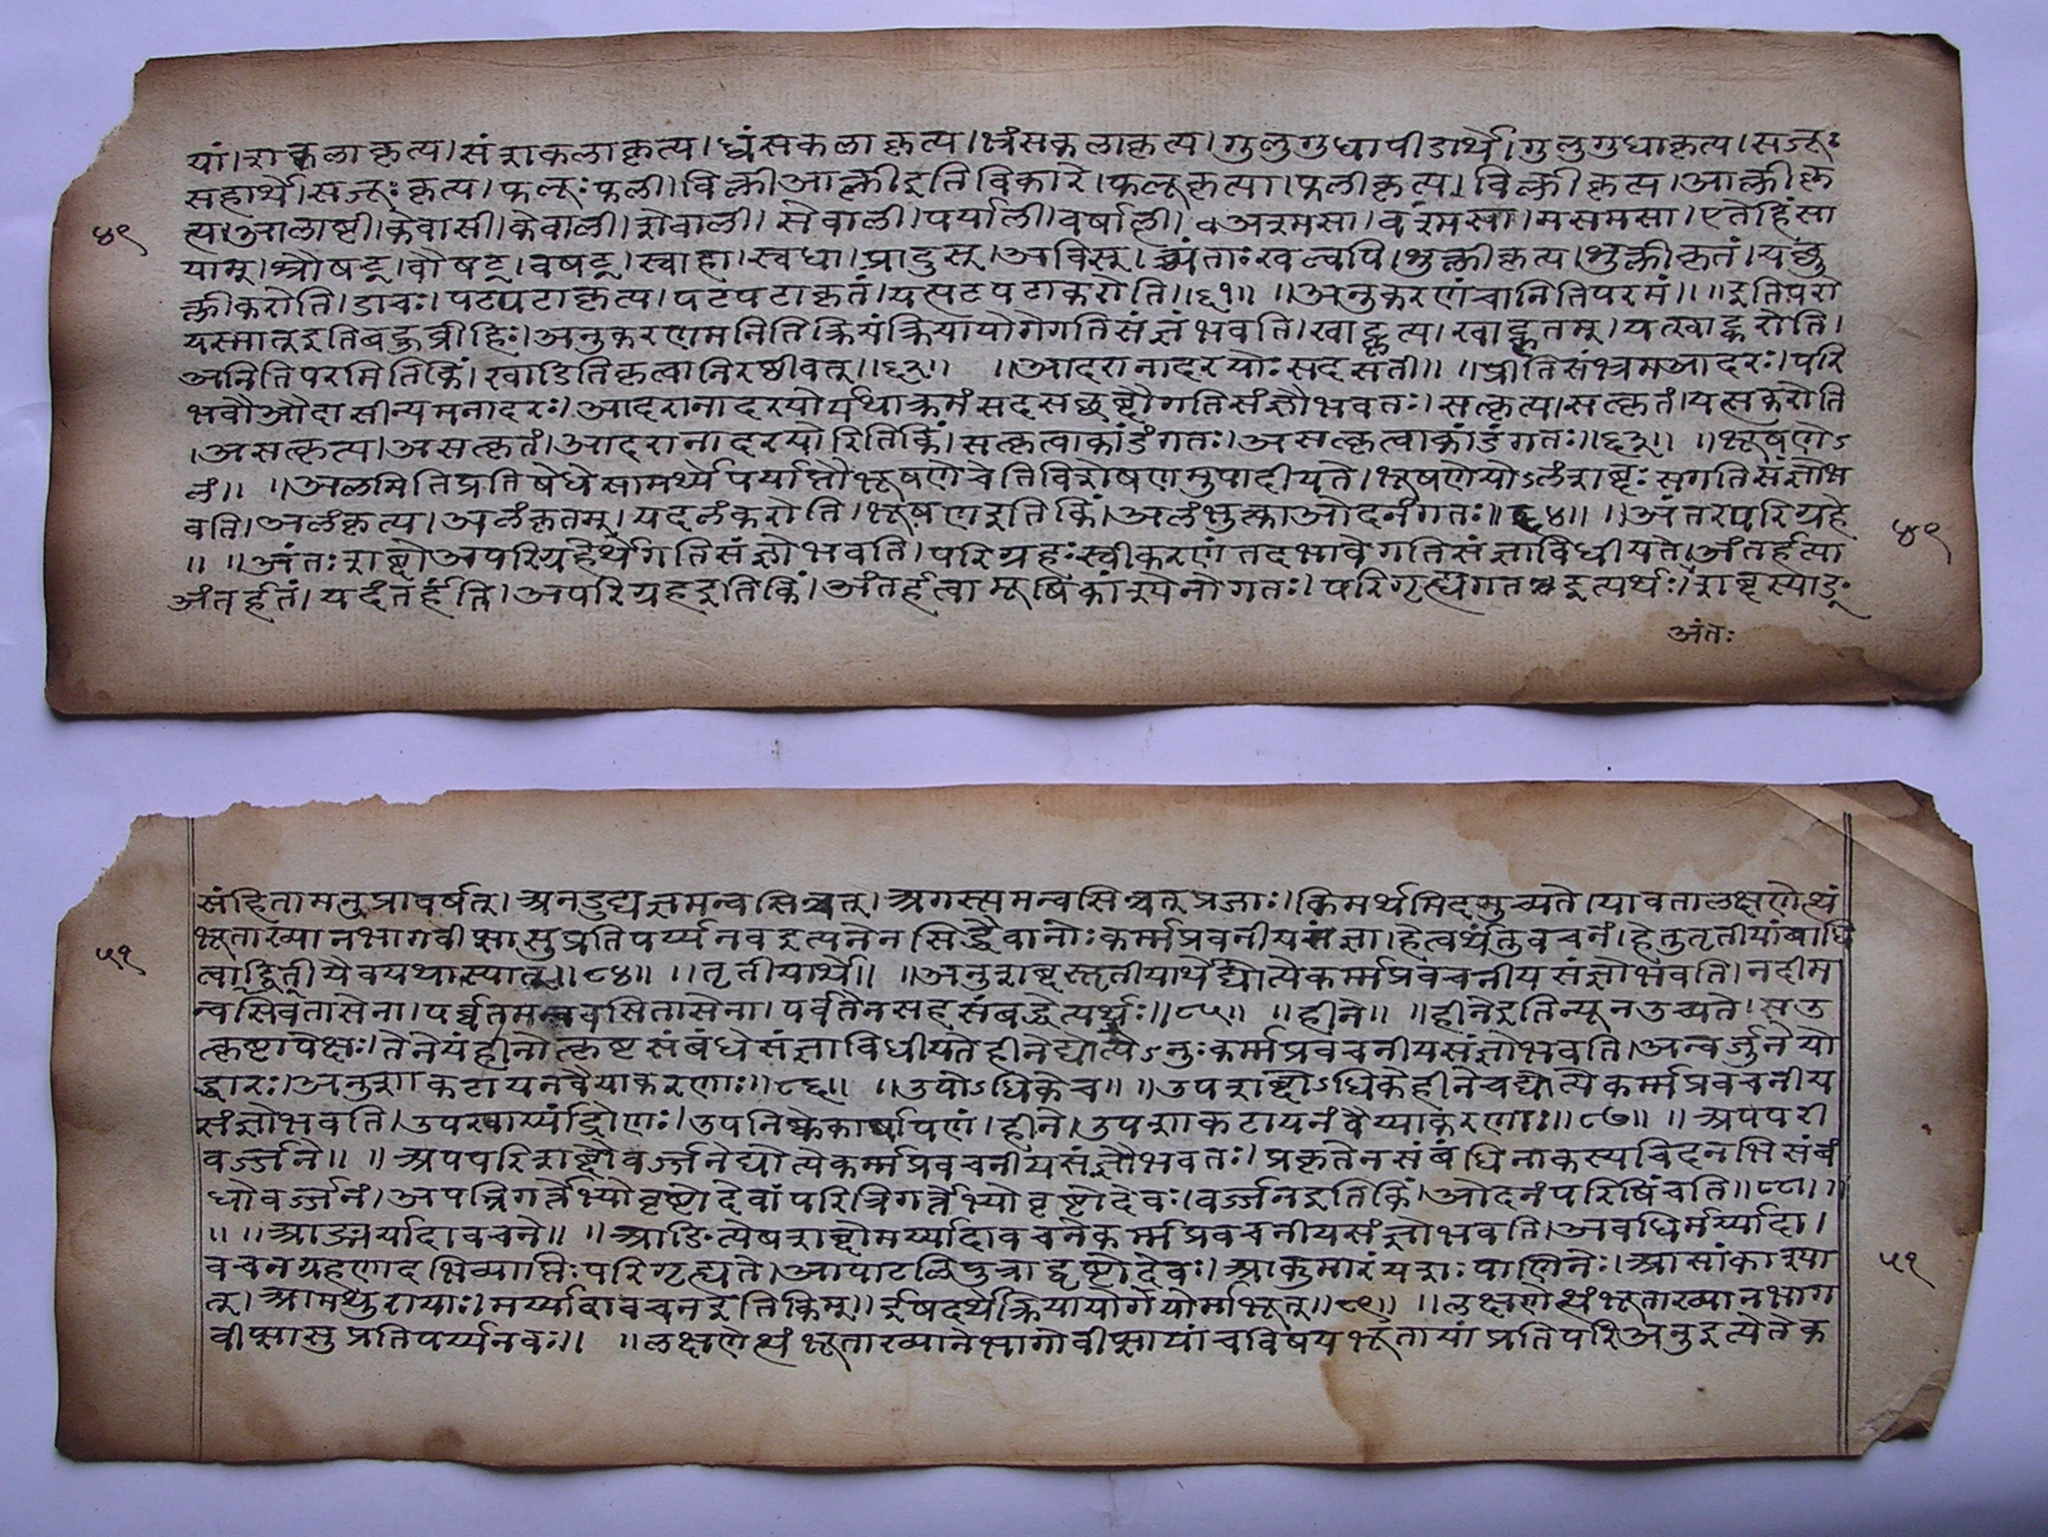 यां।शकलाकृत्य।संशकलाकृत्य।ध्वंसकलाकृत्य।भ्रंसकलाकृत्य।गुलुगुधापीडार्थे।गुलुगुधाकृत्य।सजूः
सहार्थे।सजूःकृत्य।फलूःफली।विक्लीआक्लीइतिविकारे।फलूकृत्या।फलीकृत्य।विक्लीकृत्य।आक्लीकृ
४९
त्य।आलाष्टी।केवासी।केवाली।शेवाली।सेवाली।पर्याली।वर्षाली।अत्यूमसा।वश्मसा।मसमसा।एतेहिंसा
याम्।श्रौषट्।वौषट्।वषट्।स्वाहा।स्वधा।प्रादुस्।आविस्।च्व्यंताःखल्वपि।शुक्लीकृत्य।शुक्लीकृतं।यछु
क्लीकरोति।डाचः।पटपटाकृत्य।पटपटाकृतं।यत्पटपटाकरोति॥६१॥ ॥अनुकरणंचानितिपरमं॥ ॥इतिपरो
यस्मात्इतिबहुव्रीहिः।अनुकरणमनितिक्रियंक्रियायोगेगतिसंज्ञंभवति।खाट्कृत्य।खाट्कृतम्।यत्खाट्करोति।
अनितिपरमितिकिं।खाडितिकृत्वानिरष्ठीवत्॥६२॥ ॥आदरानादरयोःसदसती॥ ॥प्रीतिसंभ्रमआदरः।परि
भवौऔदासीन्यमनादरः।आदरानादरयोर्यथाक्रमंसदसछब्दौगतिसंज्ञौभवतः।सत्कृत्य।सत्कृतं।यत्सत्करोति
।असत्कृत्य।असत्कृतं।आदरानादरयोरितिकिं।सत्कृत्वाकांडंगतः।असत्कृत्वाकांडंगतः॥६३॥ ॥भूषणेऽ
लं॥ ॥अलमितिप्रतिषेधेसामर्थ्येपर्याप्तौभूषणेचेतिविशेषणमुपादीयते।भूषणेयोऽलंशब्दःसगतिसंज्ञोभ
वति।अलंकृत्य।अलंकृतम्।यदलंकरोति।भूषणइतिकिं।अलंभुक्त्काओदनंगतः॥६४॥ ॥अंतरपरिग्रहे
४९
॥ ॥अंतःशब्दोअपरिग्रहेर्थेगतिसंज्ञोभवति।परिग्रहःस्वीकरणंतदभावेगतिसंज्ञाविधीयते।अंतर्हत्या
अंतर्हतं।यदंतर्हंति।अपरिग्रहइतिकिं।अंतर्हत्वामूषिकांश्येनोगतः।परिगृह्यगतइत्यर्थः।शब्दस्याङ्
अंतः
संहितामनुप्रावर्षत्।अनडुद्यज्ञमन्वसिञ्चत्।अगस्त्यमन्वसिञ्चत्प्रजाः।किमर्थमिदमुच्यते।यावतालक्षणेत्थं
भूताख्यानभागवीप्सासुप्रतिपर्य्यनवइत्यनेनसिद्धैवानोःकर्म्मप्रवचनीयसंज्ञा।हेत्वर्थंतुवचनं।हेतुतृतीयांबाधि
५१
त्वाद्वितीयैवयथास्यात्॥८४॥ ॥तृतीयार्थे॥ ॥अनुशब्दस्तृतीयार्थेद्योत्येकर्म्मप्रवचनीयसंज्ञोभवति।नदीम
न्वसिवतासेना।पर्व्वतमन्ववसितासेना।पर्वतेनसहसंबद्धेत्यर्थः॥८५॥ ॥हीने॥ ॥हीनेइतिन्यूनउच्यते।सउ
त्कृष्टापेक्षः।तेनेयंहीनोत्कृष्टसंबंधेसंज्ञाविधीयतेहीनेद्योत्येऽनुःकर्म्मप्रवचनीयसंज्ञोभवति।अन्वर्जुनंयो
द्धारः।अनुशाकटायनवैयाकरणाः॥८६॥ ॥उपोऽधिकेच॥ ॥उपशब्दोऽधिकेहीनेचद्योत्येकर्म्मप्रवचनीय
संज्ञोभवति।उपखार्य्यांद्रोणः।उपनिष्केकार्षापणं।हीने।उपशाकटायनंवैय्याकरणाः॥८७॥ ॥अपपरी
वर्ज्जने॥ ॥अपपरिशब्दौवर्ज्जनेद्योत्येकर्म्मप्रवचनीयसंज्ञौभवतः।प्रकृतेनसंबंधिनाकस्यचिदनभिसंबं
धोवर्ज्जनं।अपत्रिगर्त्तेभ्योवृष्टोदेवां।परित्रिगर्त्तेभ्योवृष्टोदेवः।वर्ज्जनइतिकिं।ओदनंपरिषिंचति॥८८॥
॥ ॥आङ्मर्यादावचने॥ ॥आङित्येषशब्दोमर्य्यादावचनेकर्म्मप्रवचनीयसंज्ञोभवति।अवधिर्मर्य्यादा।
वचनग्रहणादभिव्याप्तिःपरिगृह्यते।आपाटलिपुत्राद्वृष्टोदेवः।आकुमारंयशःपाणिनेः।आसांकाश्या
५१
त्।आमथुरायाः।मर्य्यादावचनइतिकिम्॥ईषदर्थेक्रियायोगेयोर्माभूत्॥८९॥ ॥लक्षणेत्थंभूताख्यानभाग
वीप्सासुप्रतिपर्य्यनवः॥ ॥लक्षणेत्थंभूताख्यानेभागोवीप्सायांचविषयभूतायांप्रतिपरिअनुइत्येतेक